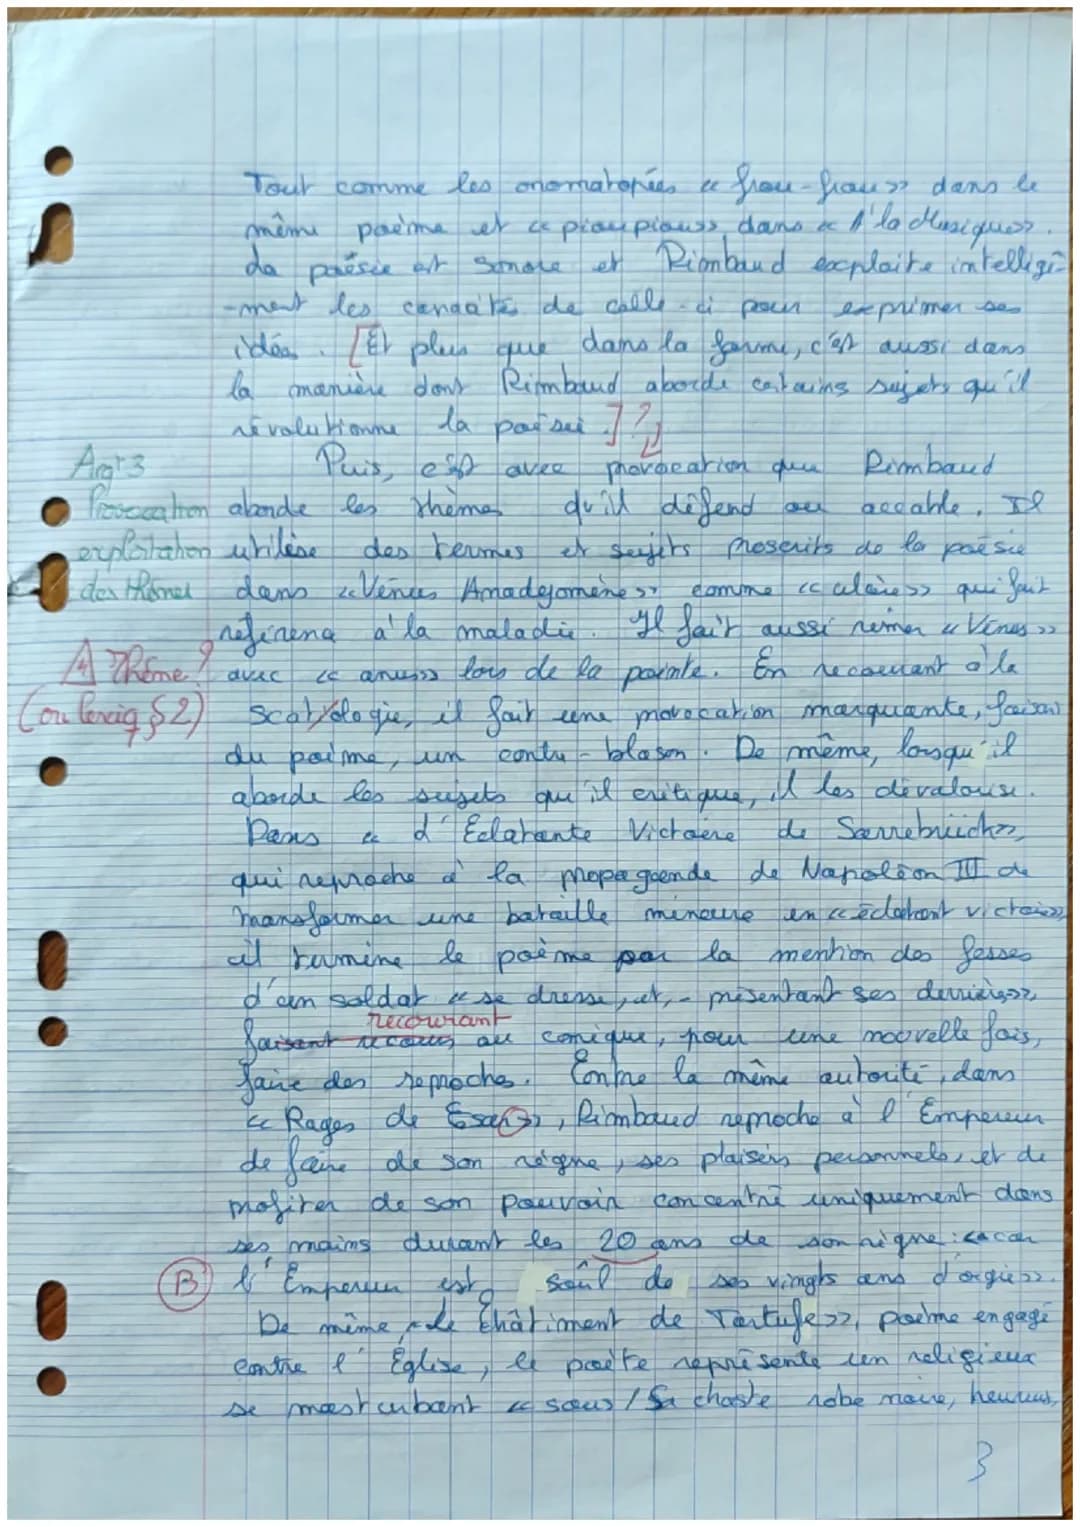 Tout comme les onomatopées « frou-frou » dans le
même poème et « pioupious » dans « A la Musique ».
La poésie est sonore et Rimbaud exploite intelligi-
-ment les de celle-ci pour exprimer ses
idées. [Et plus que dans la forme, c'est aussi dans
la manière dont Rimbaud aborde certains sujets qu'il
révolutionne la poésie.]?
Arg t 3
Puis, est avec provocation que Rimbaud
Provocation
aborde les thèmes qu'il défend ou accable. Il
exploitation
utilise des termes et sujets proscrits de la poésie
des thèmes
dans « Vénus Anadyomène » comme « ulcère » qui fait
référence à la maladie. Il fait aussi rimer « Vénus »
Thème?
avec « anus » lors de la pointe. En recourant à la
(ou §2)
scatologie, il fait une provocation marquante, faisant
du poème, un contre-blason. De même, lorsqu'il
aborde les sujets qu'il critique, il les dévalorise.
Dans « L'Eclatante Victoire de Sarrebrück »,
qui reproche à la propagande de Napoléon III de
transformer une bataille mineure en « éclatant victoire »
il termine le poème par la mention des fesses
d'un soldat « se dresse, et, - présentant ses derrières »,
recourant
faisant recours au comique, pour une nouvelle fois,
faire des reproches. Contre la même autorité, dans
« Rages de », Rimbaud reproche à l'Empereur
de faire de son règne, ses plaisirs personnels, et de
profiter de son pouvoir concentré uniquement dans
ses mains durant les 20 ans de son règne : « car
B
l'Empereur est soûl de ses vingts ans d'orgie ».
De même, « Le Châtiment de Tartufe », poème engagé
contre l'Église, le poète représente un religieux
se masturbant « sous / Sa chaste robe noire, heureux,
3